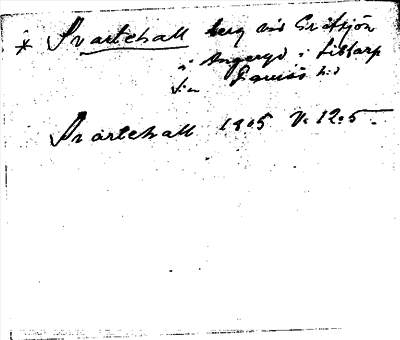 * Svartehall berg vid Gråtsjön
i Angeryd i Listarp
s:n
Svartehall 1805 V. 12:5.